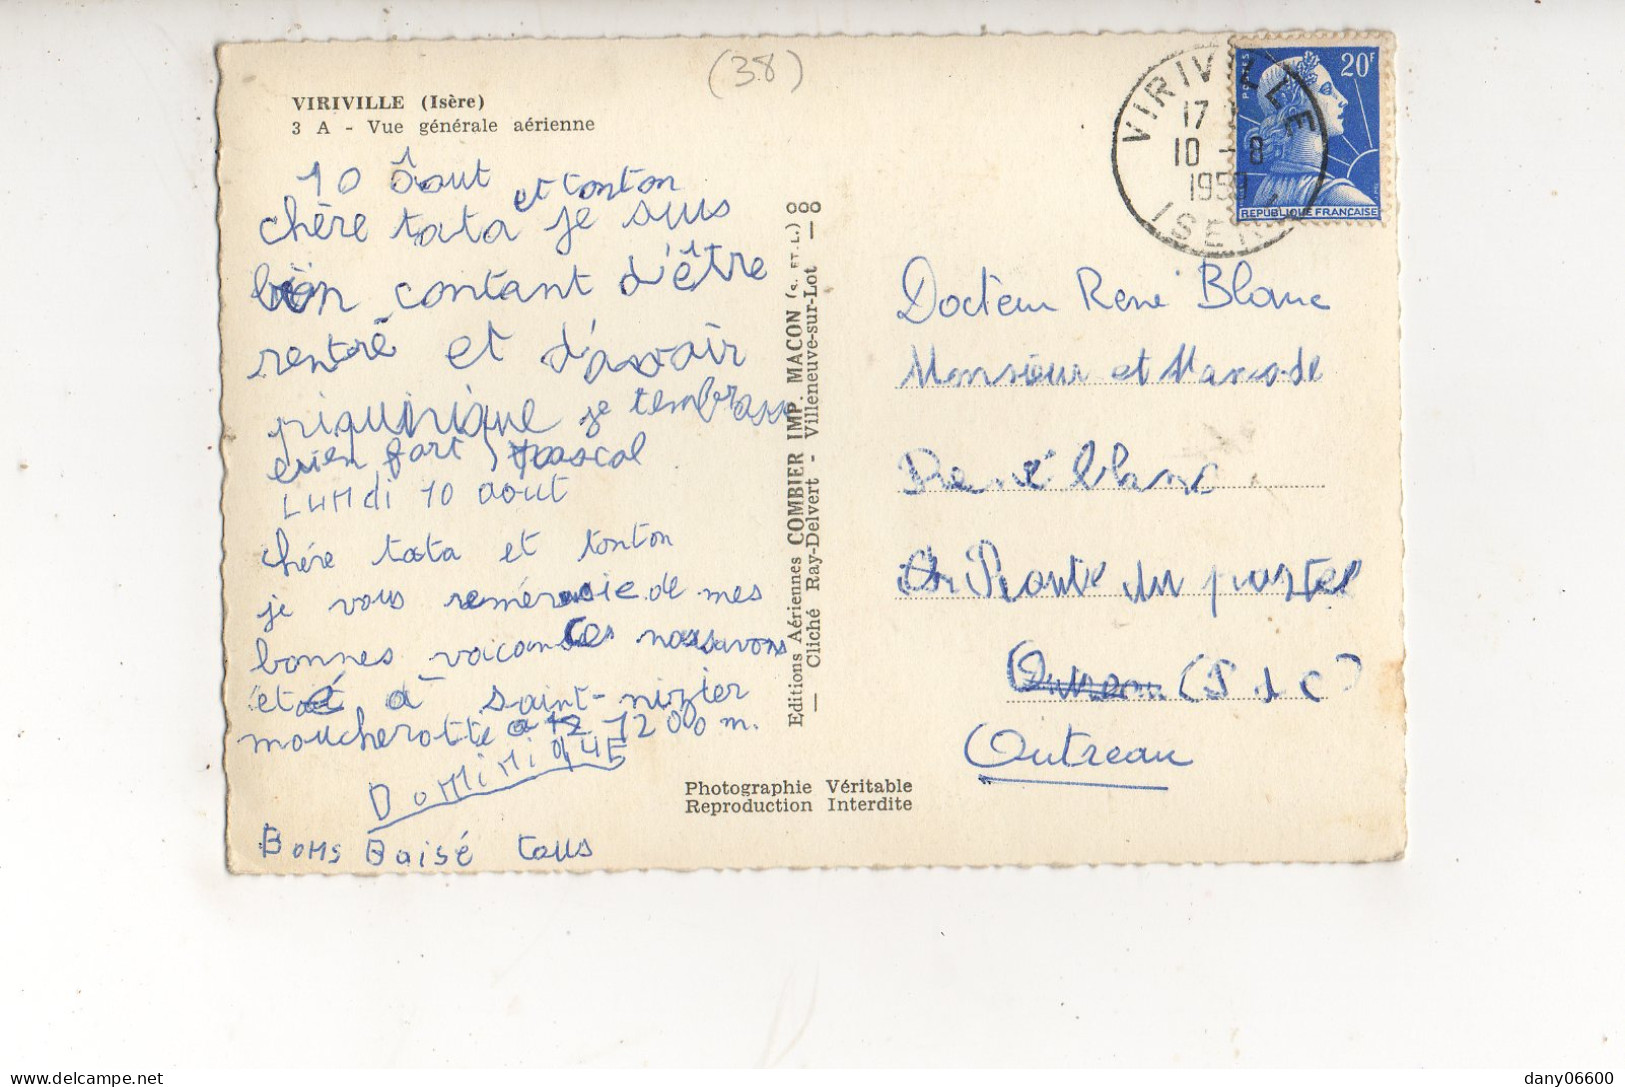 (38)
VIRIVILLE (Isère)
3 A - Vue générale aérienne
10 Âout
et tonton
chère tata je suis
bien contant d'être
rentré et d'avoir
piquinique je tembrasse
bien fort Pascal
LUNdi 10 aout
chére tata et tonton
je vous remércie de mes
bonnes vacances nous avons
été à saint-nizier
moucherotte a 12 1200 m.
DOMiNiqUE
BONS Baisé tous
Editions Aériennes COMBIER IMP. MACON (S. ET L.)
— Cliché Ray-Delvert - Villeneuve-sur-Lot —
Photographie Véritable
Reproduction Interdite
VIRIVILLE
17
10 - 8
1959
ISERE
POSTES
20F
REPUBLIQUE FRANÇAISE
Docteur René Blanc
Monsieur et
René blanc
Route du
Outreau (P d C)
Outreau
dany06600